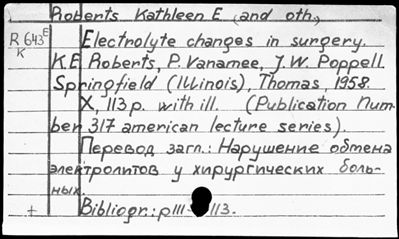 Roberts Kathleen E. (and oth.)
R 643 E
K
Electrolyte changes in surgery.
K.E. Roberts, P. Vanamee, J.W. Poppell.
Springfield (Illinois), Thomas, 1958.
X, 113 p. with ill. (Publication Num-
ber 317 american lecture series).
Перевод загл.: Нарушение обмена
электролитов у хирургических боль-
ных.
+ Bibliogr.: p 111-113.